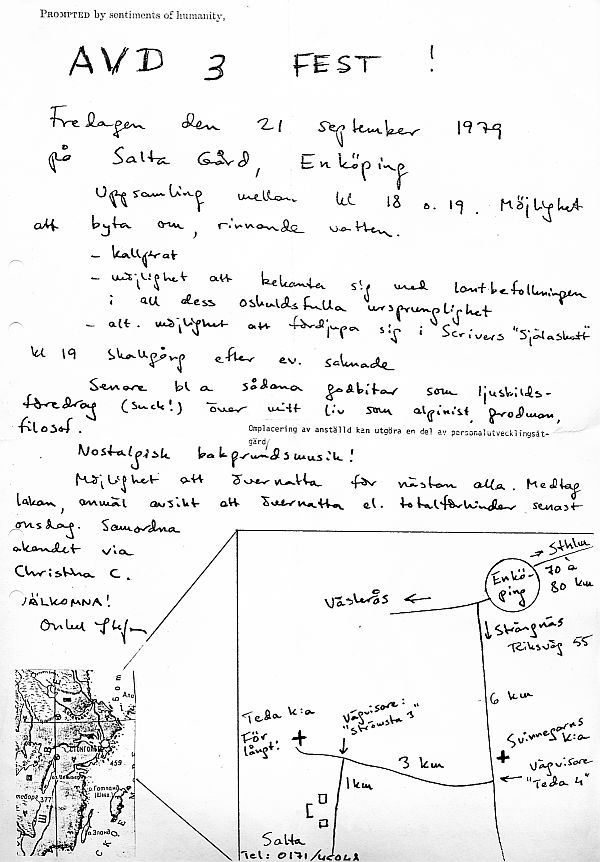 PROMPTED by sentiments of humanity,
AVD 3 FEST !
Fredagen den 21 september 1979
på Salta Gård, Enköping
Uppsamling mellan kl 18 o. 19. Möjlighet
att byta om, rinnande vatten.
- kallprat
- möjlighet att bekanta sig med lantbefolkningen
i all dess oskuldsfulla ursprunglighet
- alt. möjlighet att fördjupa sig i Scrivers "Själaskatt"
kl 19 Skallgång efter ev. saknade
Senare bl a sådana godbitar som ljusbilds-
föredrag (suck!) över mitt liv som alpinist, grodman,
filosof.
Omplacering av anställd kan utgöra en del av personalutvecklingsåt-
gärd/
Nostalgisk bakgrundsmusik!
Möjlighet att övernatta för nästan alla. Medtag
lakan, anmäl avsikt att övernatta el. totalförhinder senast
onsdag. Samordna
åkandet via
Christina C.
VÄLKOMNA!
Onkel
→ Sthlm
70 à
80 km
Enkö-
ping
Västerås ←
↓ Strängnäs
Riksväg 55
6 km
Teda k:a
För
långt!
Vägvisare:
"Strömsta 3"
Svinnegarns
k:a
3 km
Vägvisare
"Teda 4"
1 km
Salta
Tel: 0171/45048